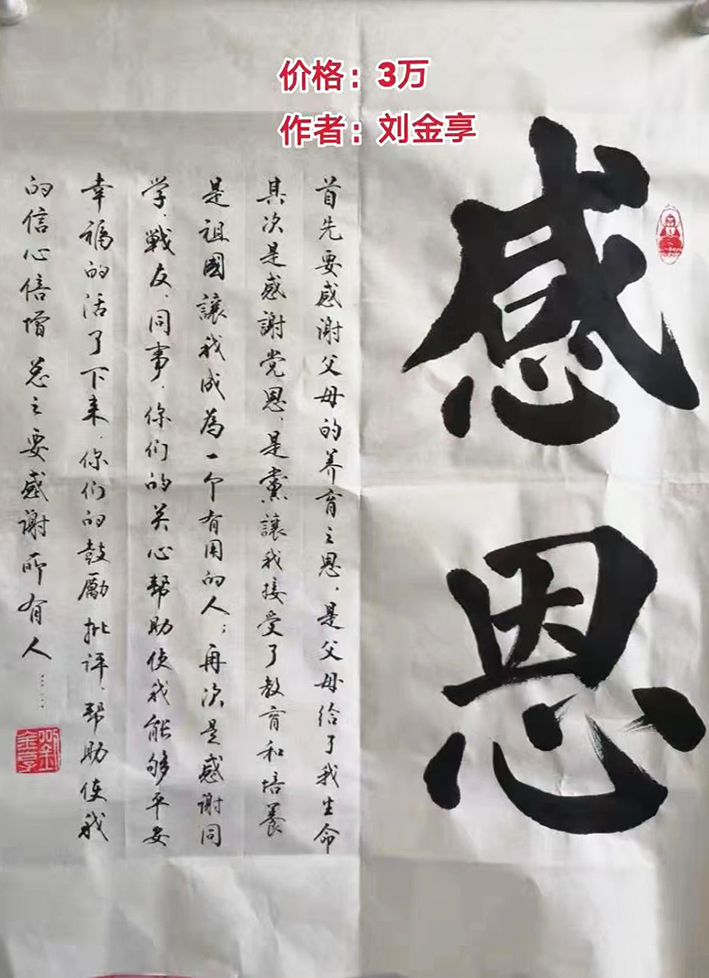 价格：3万
作者：刘金享
感恩
首先要感谢父母的养育之恩，是父母给了我生命
其次是感謝党恩，是黨讓我接受了教育和培養
是祖國讓我成為一个有用的人；再次是感谢同
学、戰友、同事，你们的关心帮助使我能够平安
幸福的活了下来，你们的鼓勵批评、帮助使我
的信心倍增总之要感谢所有人……
刘金享